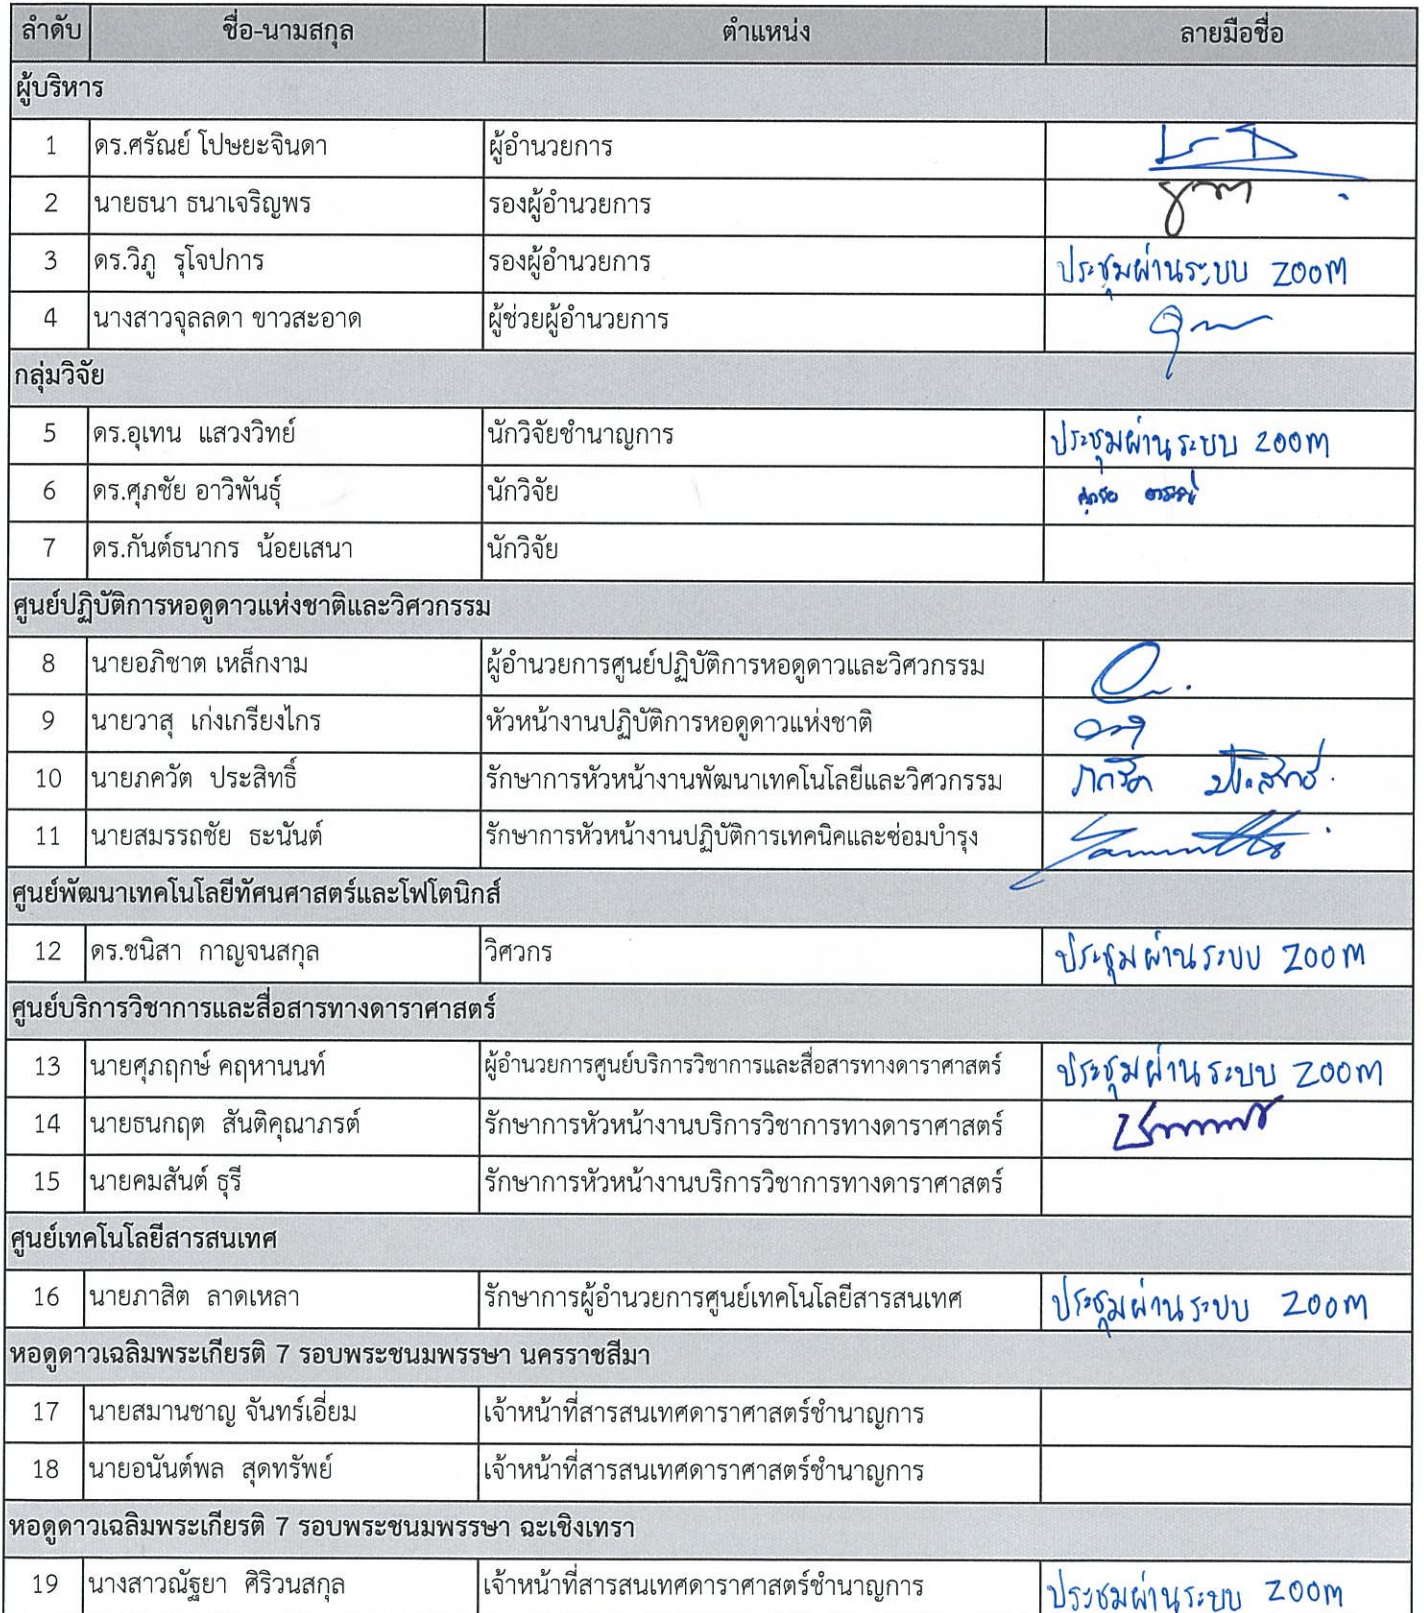 ลำดับ ชื่อ-นามสกุล ตำแหน่ง ลายมือชื่อ
ผู้บริหาร
1 ดร.ศรัณย์ โปษยะจินดา ผู้อำนวยการ
2 นายธนา ธนาเจริญพร รองผู้อำนวยการ
3 ดร.วิภู รุโจปการ รองผู้อำนวยการ ประชุมผ่านระบบ zoom
4 นางสาวจุลลดา ขาวสะอาด ผู้ช่วยผู้อำนวยการ
กลุ่มวิจัย
5 ดร.อุเทน แสวงวิทย์ นักวิจัยชำนาญการ ประชุมผ่านระบบ zoom
6 ดร.ศุภชัย อาวิพันธุ์ นักวิจัย
7 ดร.กันต์ธนากร น้อยเสนา นักวิจัย
ศูนย์ปฏิบัติการหอดูดาวแห่งชาติและวิศวกรรม
8 นายอภิชาต เหล็กงาม ผู้อำนวยการศูนย์ปฏิบัติการหอดูดาวและวิศวกรรม
9 นายวาสุ เก่งเกรียงไกร หัวหน้างานปฏิบัติการหอดูดาวแห่งชาติ
10 นายภควัต ประสิทธิ์ รักษาการหัวหน้างานพัฒนาเทคโนโลยีและวิศวกรรม ภควัต ประสิทธิ์
11 นายสมรรถชัย ธะนันต์ รักษาการหัวหน้างานปฏิบัติการเทคนิคและซ่อมบำรุง
ศูนย์พัฒนาเทคโนโลยีทัศนศาสตร์และโฟโตนิกส์
12 ดร.ชนิสา กาญจนสกุล วิศวกร ประชุมผ่านระบบ zoom
ศูนย์บริการวิชาการและสื่อสารทางดาราศาสตร์
13 นายศุภฤกษ์ คฤหานนท์ ผู้อำนวยการศูนย์บริการวิชาการและสื่อสารทางดาราศาสตร์ ประชุมผ่านระบบ zoom
14 นายธนกฤต สันติคุณาภรต์ รักษาการหัวหน้างานบริการวิชาการทางดาราศาสตร์
15 นายคมสันต์ ธุรี รักษาการหัวหน้างานบริการวิชาการทางดาราศาสตร์
ศูนย์เทคโนโลยีสารสนเทศ
16 นายภาสิต ลาดเหลา รักษาการผู้อำนวยการศูนย์เทคโนโลยีสารสนเทศ ประชุมผ่านระบบ zoom
หอดูดาวเฉลิมพระเกียรติ 7 รอบพระชนมพรรษา นครราชสีมา
17 นายสมานชาญ จันทร์เอี่ยม เจ้าหน้าที่สารสนเทศดาราศาสตร์ชำนาญการ
18 นายอนันต์พล สุดทรัพย์ เจ้าหน้าที่สารสนเทศดาราศาสตร์ชำนาญการ
หอดูดาวเฉลิมพระเกียรติ 7 รอบพระชนมพรรษา ฉะเชิงเทรา
19 นางสาวณัฐยา ศิริวนสกุล เจ้าหน้าที่สารสนเทศดาราศาสตร์ชำนาญการ ประชุมผ่านระบบ zoom